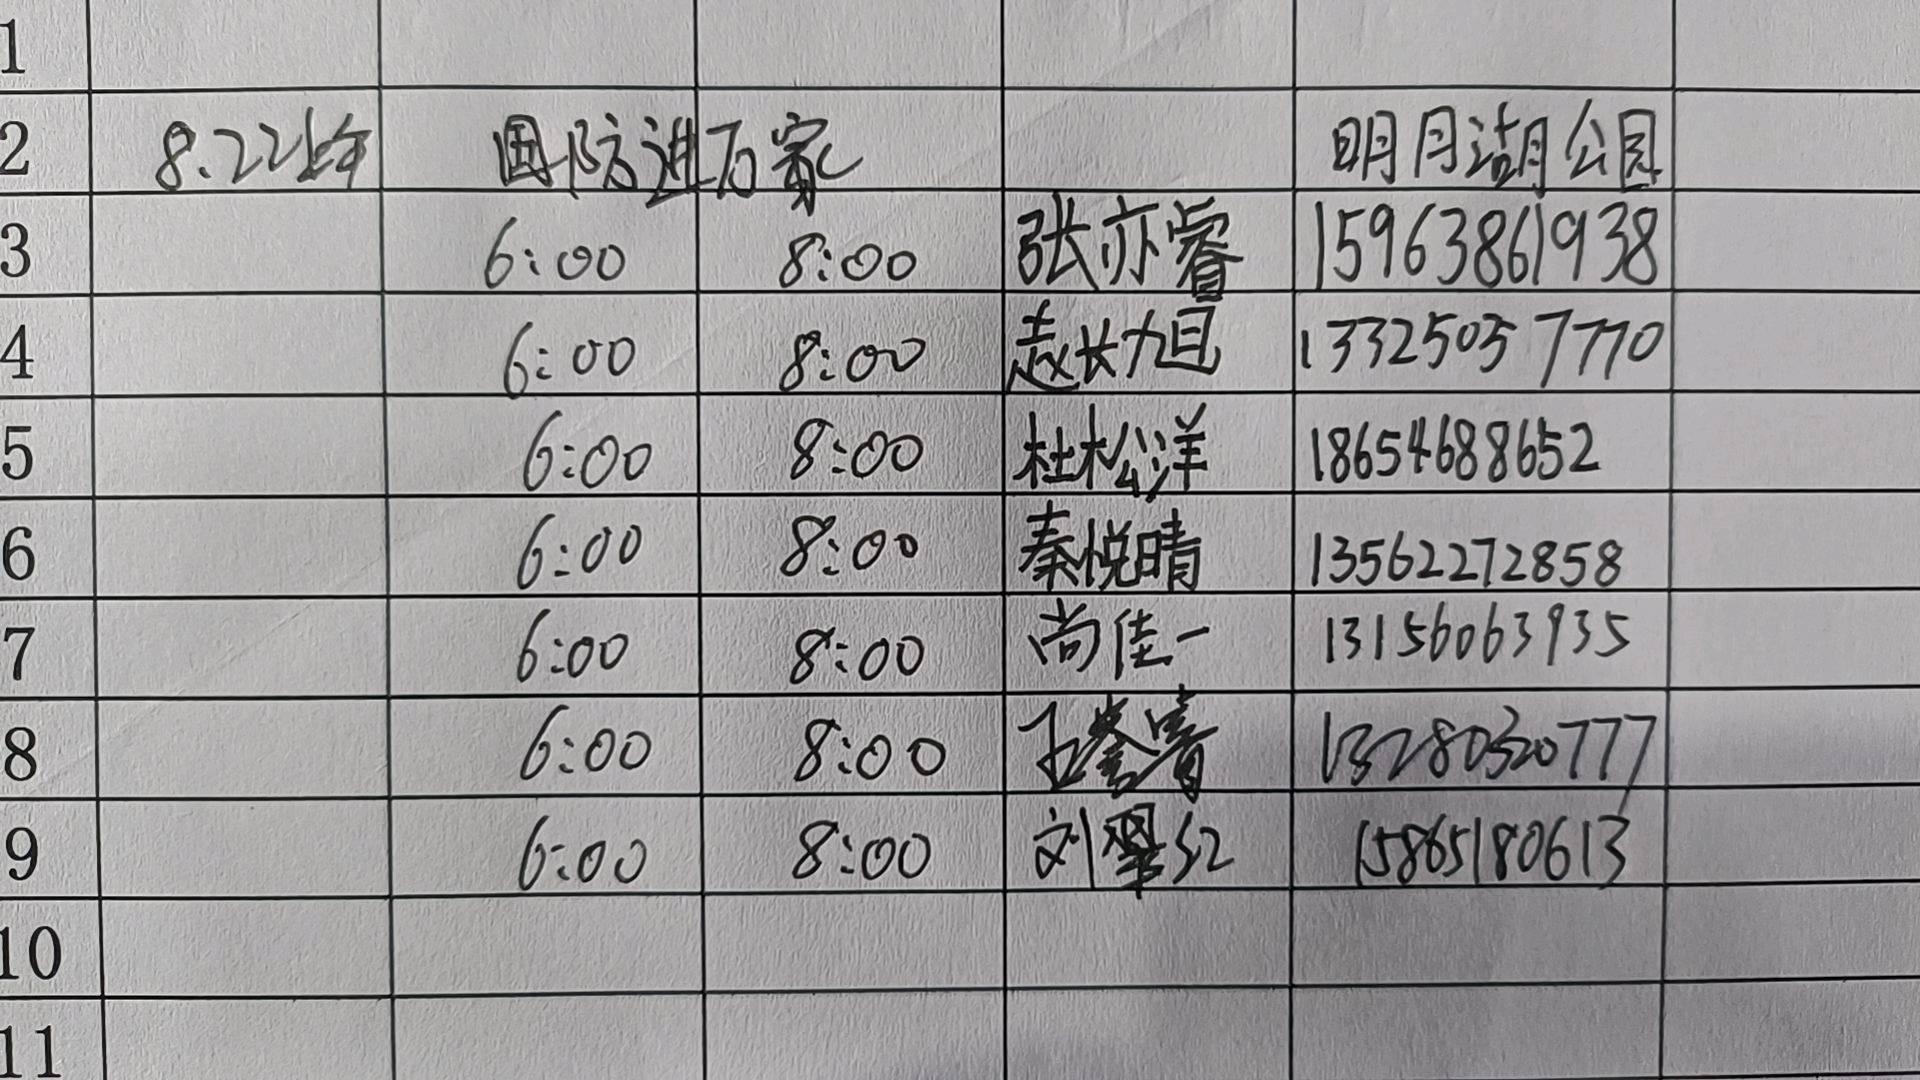 1
2 8.22上午 国防进万家 明月湖公园
3 6:00 8:00 张亦睿 15963861938
4 6:00 8:00 赵长旭 13325057770
5 6:00 8:00 杜松洋 18654688652
6 6:00 8:00 秦悦晴 13562272858
7 6:00 8:00 尚佳一 13156063935
8 6:00 8:00 13280320777
9 6:00 8:00 刘翠红 15865180613
10
11